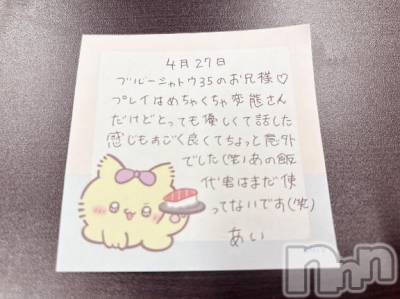 4月27日
ブルーシャトウ35のお兄様♡
プレイはめちゃくちゃ変態さん
だけどとっても優しくて話した
感じもすごく良くてちょっと意外
でした(笑)あの飯
代金はまだ使
ってないです(笑)
あい